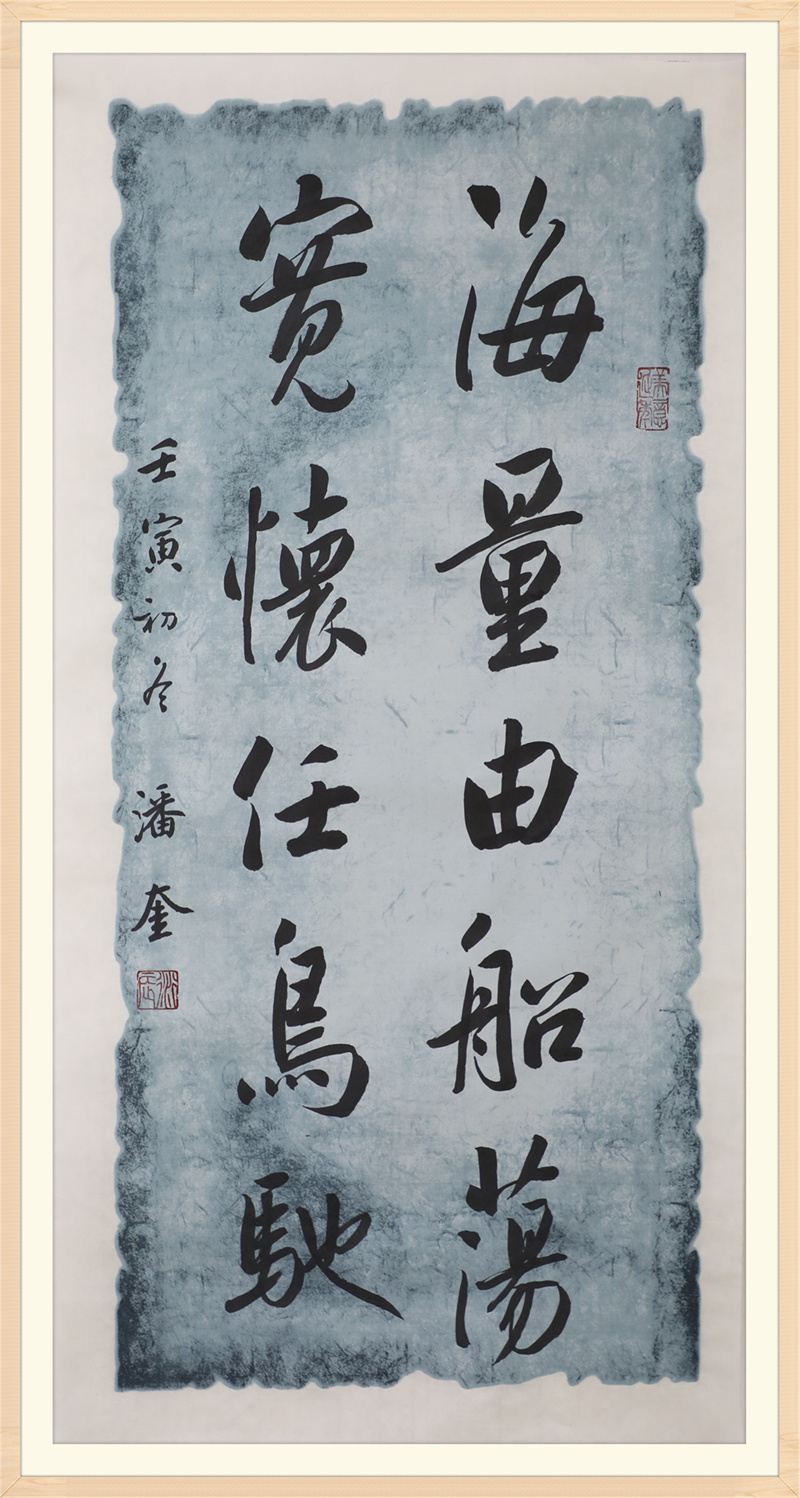 海量由船蕩
寬懷任鳥馳
壬寅初冬 潘奎